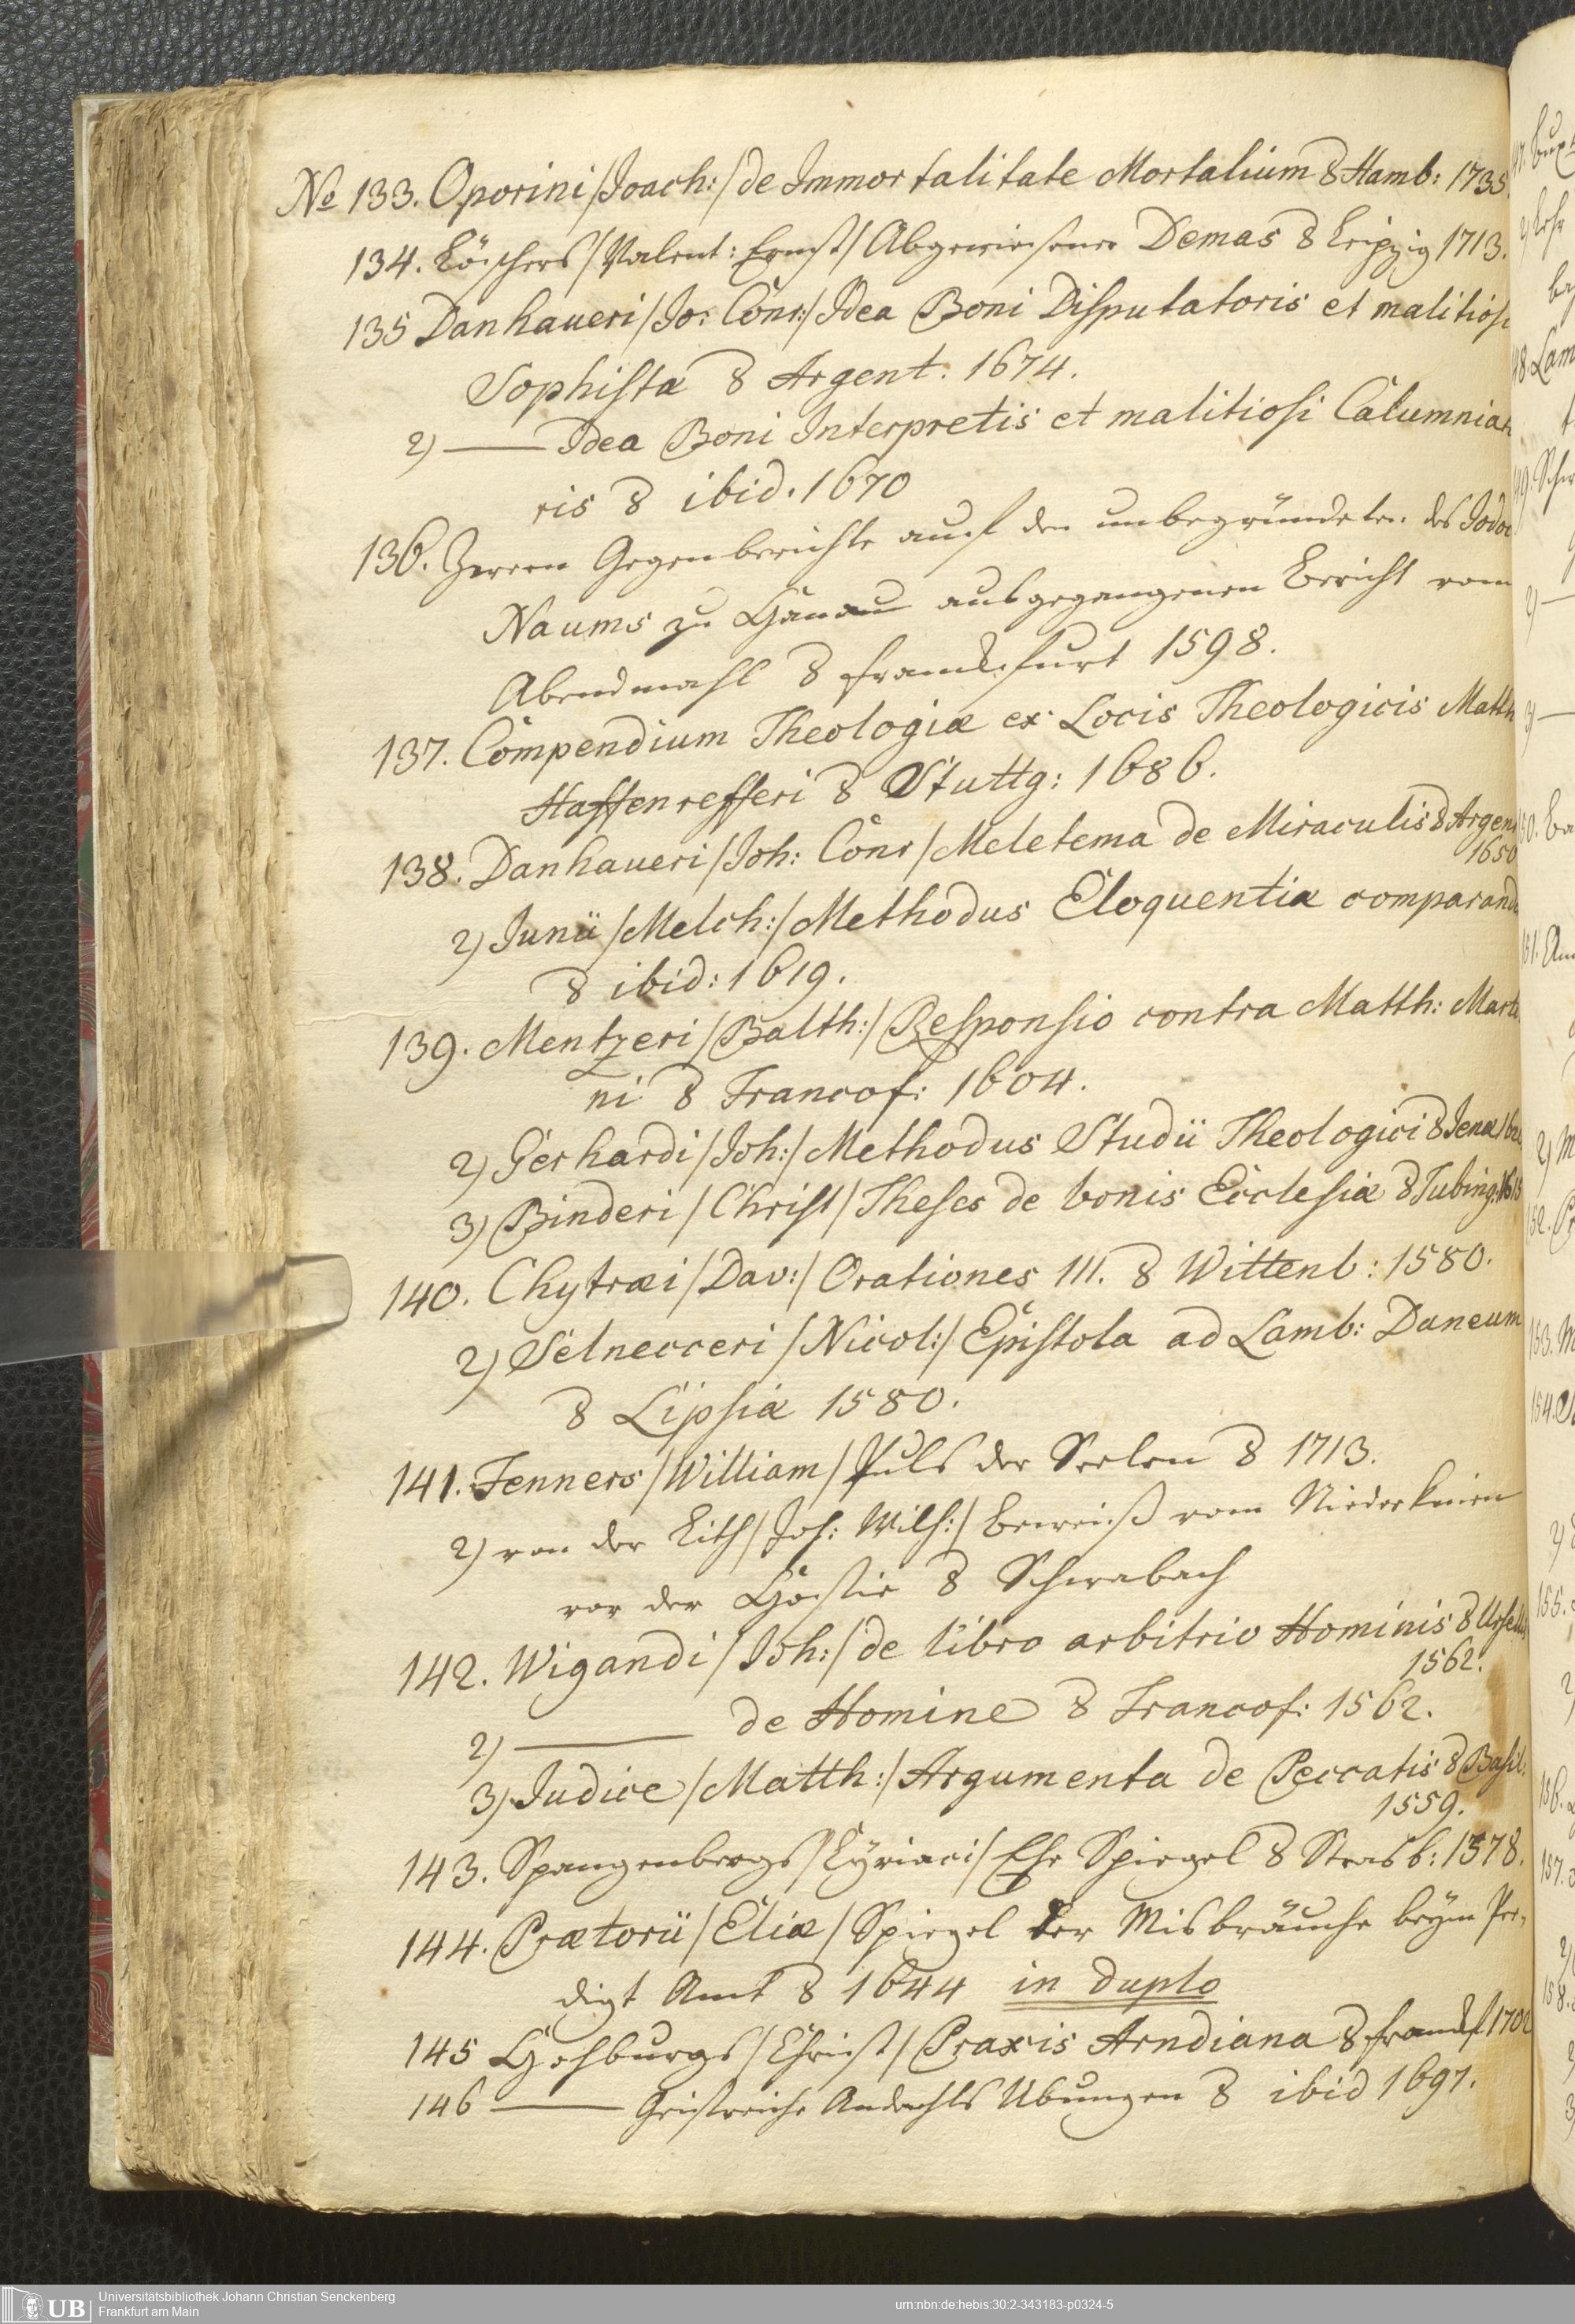 № 133. Oporini /Joach:/ de Immortalitate Mortalium 8 Hamb: 1735.
134. Löschers /Valent: Ernst/ Abgewiesener Demas 8 Leipzig 1713.
135 Danhaueri /Jo: Conr:/ Idea Boni Disputatoris et malitiosi
Sophistæ 8 Argent. 1674.
2) — Idea Boni Interpretis et malitiosi Calumniato
ris 8 ibid. 1670
136. Gegenberichte auf den unbegründeten des Jodoci
Naums zu Hanau ausgegangenen Bericht vom
Abendmahl 8 Franckfurt 1598.
137. Compendium Theologiæ ex Locis Theologicis Matth
Haffenrefferi 8 Stuttg: 1686.
138. Danhaueri /Joh: Conr/ Meletema de Miraculis 8 Argent
1650
2) Junii /Melch:/ Methodus Eloquentiæ comparandæ
8 ibid: 1619.
139. Mentzeri /Balth:/ Responsio contra Matth: Marti
ni 8 Francof: 1604.
2) Gerhardi /Joh:/ Methodus Studii Theologici 8 Jenæ
3) Binderi /Christ/ Theses de bonis Ecclesiæ 8 Tubing:
140. Chytræi /Dav:/ Orationes III. 8 Wittenb: 1580.
2) Selnecceri /Nicol:/ Epistola ad Lamb: Daneum
8 Lipsiæ 1580.
141. Fenners /William/ Puls der Seelen 8 1713.
2) von der Lith /Joh: Wilh:/ Beweiß vom Niederknien
vor der Hostie 8 Schwabach
142. Wigandi /Joh:/ de libro arbitrio Hominis 8 Ursellis
1562.
2) — de Homine 8 Francof: 1562.
3) Judice /Matth:/ Argumenta de Peccatis 8 Basil:
1559.
143. Spangenbergs /Cyriaci/ Ehe Spiegel 8 Strasb: 1578.
144. Prætorii /Eliæ/ Spiegel der Misbräuche beym Pre,
digt Amt 8 1644 in duplo
145 Hohburgs /Christ/ Praxis Arndiana 8 Franckf 1702
146 — Geistreiche Andachts Ubungen 8 ibid 1697.
Universitätsbibliothek Johann Christian Senckenberg
Frankfurt am Main
UB
urn:nbn:de:hebis:30:2-343183-p0324-5